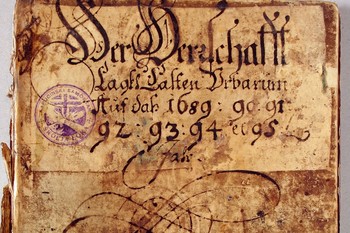 Der Herrschafft
Lagkh Casten Urbarium
Auf daß 1689: 90: 91:
92: 93: 94 et 95
Jahr